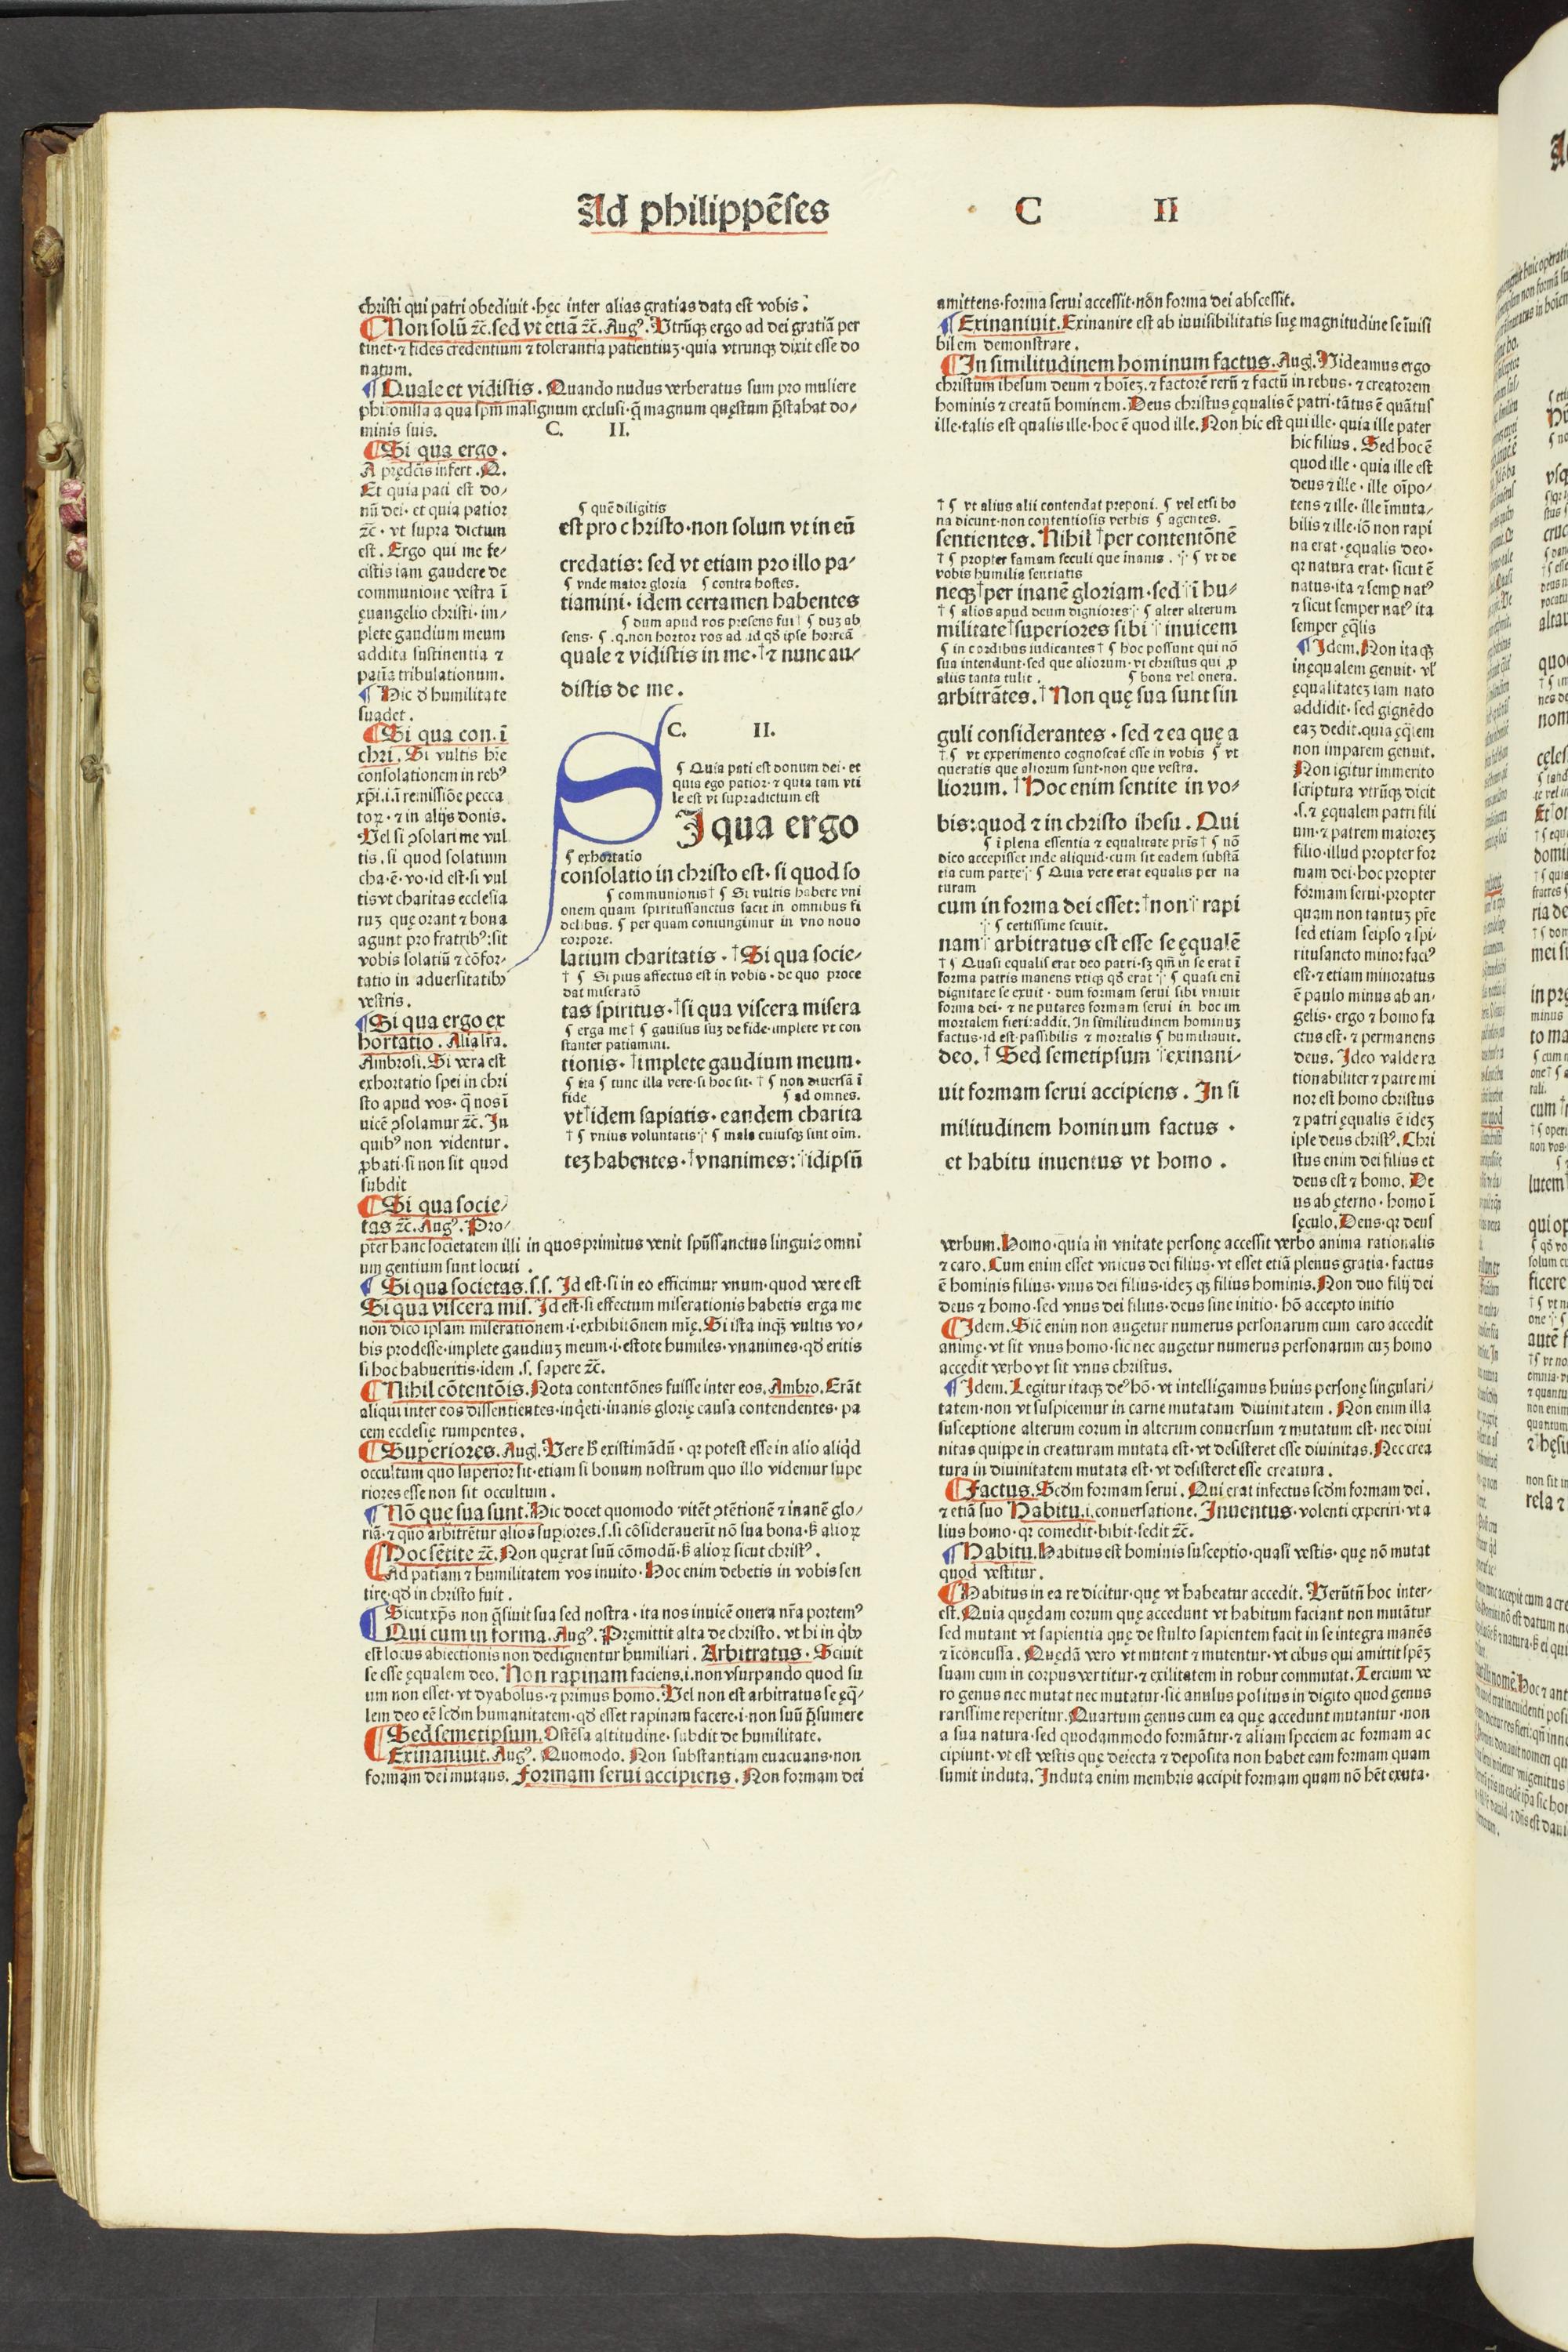 Ad philippēses
C II
christi qui patri obediuit·hęc inter alias gratias data est vobis.
Non solū ⁊c̄.sed vt etiā ⁊c̄.Augꝰ.Vtrūqꝫ ergo ad dei gratiā per
tinet·⁊ fides credentium ⁊ tolerantia patientiuꝫ·quia vtrunqꝫ dixit esse do
natum.
Quale et vidistis. Quando nudus verberatus sum pro muliere
phitonissa a qua spm̄ malignum exclusi·q̄ magnum quęstum p̄stabat do/
minis suis.
C. II.
Si qua ergo.
A prędcīs infert.Q.
Et quia pati est do/
nū dei·et quia patior
⁊c̄·vt supra dictum
est. Ergo qui me fe/
cistis iam gaudere de
communione vestra ī
ęuangelio christi·im/
plete gaudium meum
addita sustinentia ⁊
patīa tribulationum.
Hic d̄ humilitate
suadet.
Si qua con.ī
chri. Si vultis hr̄e
consolationem in rebꝰ
xp̄i.i.ī remissiōe pecca
toꝝ·⁊ in alijs donis.
Vel si ꝯsolari me vul
tis.si quod solatium
cha·ē·vo·id est·si vul
tis vt charitas ecclesia
ruꝫ quę orant ⁊ bona
agunt pro fratribꝰ:sit
vobis solatiū ⁊ cōfor/
tatio in aduersitatibꝰ
vestris.
Si qua ergo ex
hortatio. Alia lr̄a.
Ambrosi. Si vera est
exhortatio spei in chri
sto apud vos·q̄ nos ī
uicē ꝯsolamur ⁊c̄. In
quibꝰ non videntur.
ꝓbati·si non sit quod
subdit
Si qua socie/
tas ⁊c̄. Augꝰ. Pro/
pter hanc societatem illi in quos primitus venit spūssanctus linguis omni
um gentium sunt locuti.
Si qua societas.s.s. Id est·si in eo efficimur vnum·quod vere est
Si qua viscera mis. Id est·si effectum miserationis habetis erga me
non dico ipsam miserationem·i·exhibitōnem mīę. Si ista inqꝫ vultis vo/
bis prodesse·implete gaudiuꝫ meum·i·estote humiles·vnanimes·qd̄ eritis
si hoc habueritis·idem .s. sapere ⁊c̄.
Nihil cōtentōis. Nota contentōnes fuisse inter eos. Ambro. Erāt
aliqui inter eos dissentientes·inq̄eti·inanis glorię causa contendentes·pa
cem ecclesię rumpentes.
Superiores. Aug. Vere h̄ existimādū·qꝛ potest esse in alio aliqd
occultum quo superior sit·etiam si bonum nostrum quo illo videmur supe
riores esse non sit occultum.
Nō quę sua sunt. Hic docet quomodo vitēt ꝯtētionē ⁊ inanē glo/
riā·⁊ quo arbitrētur alios supiores.s.si cōsiderauerīt nō sua bona·s̄ alioꝝ
Hoc sētite ⁊c̄. Non quęrat suū cōmodū·s̄ alioꝝ sicut christꝰ.
Ad patiam ⁊ humilitatem vos inuito·Hoc enim debetis in vobis sen
tire·qd̄ in christo fuit.
Sicut xp̄s non q̄siuit sua sed nostra·ita nos inuicē onera nr̄a portemꝰ
Qui cum in forma. Augꝰ. Pręmittit alta de christo. vt hi in qͥbꝰ
est locus abiectionis non dedignentur humiliari. Arbitratus. Sciuit
se esse ęqualem deo. Non rapinam faciens.i.non vsurpando quod su
um non esset·vt dyabolus·⁊ primus homo. Vel non est arbitratus se ęq̄/
lem deo eē scdm̄ humanitatem·qd̄ esset rapinam facere·i·non suū p̄sumere
Sed semetipsum. Ostēsa altitudine·subdit de humilitate.
Exinaniuit. Augꝰ. Quomodo. Non substantiam euacuans·non
formam dei mutans. Formam serui accipiens. Non formam dei
¶ quē diligitis
est pro christo·non solum vt in eū
credatis: sed vt etiam pro illo pa-
¶ vnde maior gloria ¶ contra hostes.
tiamini·idem certamen habentes
¶ dum apud vos presens fui† ¶ duꝫ ab
sens· ¶ .q.non hortor vos ad id qd̄ ipse horreā
quale ⁊ vidistis in me·†⁊ nunc au/
distis de me.
C. II.
¶ Quia pati est donum dei·et
quia ego patior·⁊ quia tam vti
le est vt supradictum est
SI qua ergo
¶ exhortatio
consolatio in christo est·si quod so
¶ communionis† ¶ Si vultis habere vni
onem quam spiritussanctus facit in omnibus fi
delibus. ¶ per quam coniungimur in vno nouo
corpore.
latium charitatis·†Si qua socie/
† ¶ Si pius affectus est in vobis·de quo proce
dat miseratō
tas spiritus·†si qua viscera misera
¶ erga me† ¶ gauisus suꝫ de fide·implete vt con
stanter patiamini.
tionis·†implete gaudium meum·
¶ ita ¶ tunc illa vere·si hoc sit·† ¶ non diuersā ī
fide ¶ ad omnes.
vt†idem sapiatis·eandem charita
† ¶ vnius voluntatis ¶ mala cuiusqꝫ sint oīm.
teꝫ habentes·†vnanimes:†idipsū
amittens·forma serui accessit·nōn forma dei abscessit.
Exinaniuit. Exinanire est ab inuisibilitatis suę magnitudine se īuisi
bilem demonstrare.
In similitudinem hominum factus. Aug. Videamus ergo
christum ihesum deum ⁊ hoīeꝫ.⁊ factorē rerū ⁊ factū in rebus·⁊ creatorem
hominis ⁊ creatū hominem. Deus christus ęqualis ē patri·tātus ē quātus
ille·talis est qualis ille·hoc ē quod ille. Non hic est qui ille·quia ille pater
hic filius. Sed hoc ē
quod ille·quia ille est
deus ⁊ ille·ille oīpo/
tens ⁊ ille·ille īmuta/
bilis ⁊ ille·iō non rapi
na erat·ęqualis deo·
qꝛ natura erat·sicut ē
natus·ita ⁊ semp natꝰ
⁊ sicut semper natꝰ ita
semper ęq̄lis
Idem. Non itaqꝫ
inęqualem genuit·vł
ęqualitateꝫ iam nato
addidit·sed gignēdo
eaꝫ dedit.quia ęq̄lem
non imparem genuit.
Non igitur immerito
scriptura vtrūqꝫ dicit
.s.⁊ ęqualem patri fili
um·⁊ patrem maioreꝫ
filio·illud propter for
mam dei·hoc propter
formam serui·propter
quam non tantuꝫ pr̄e
sed etiam seipso ⁊ spi-
ritusancto minor facꝰ
est·⁊ etiam minoratus
ē paulo minus ab an-
gelis·ergo ⁊ homo fa
ctus est·⁊ permanens
deus. Ideo valde ra
tionabiliter ⁊ patre mi
nor est homo christus
⁊ patri ęqualis ē ideꝫ
ipse deus christꝰ. Chri
stus enim dei filius et
deus est ⁊ homo. De
us ab ęterno·homo ī
sęculo. Deus·qꝛ deus
verbum. Homo·quia in vnitate personę accessit verbo anima rationalis
⁊ caro. Cum enim esset vnicus dei filius·vt esset etiā plenus gratia·factus
ē hominis filius·vnus dei filius·ideꝫ qꝫ filius hominis. Non duo filij dei
deus ⁊ homo·sed vnus dei filius·deus sine initio·hō accepto initio
Idem. Sic̄ enim non augetur numerus personarum cum caro accedit
animę·vt sit vnus homo·sic nec augetur numerus personarum cuꝫ homo
accedit verbo vt sit vnus christus.
Idem. Legitur itaqꝫ deꝰ hō·vt intelligamus huius personę singulari/
tatem·non vt suspicemur in carne mutatam diuinitatem. Non enim illa
susceptione alterum eorum in alterum conuersum ⁊ mutatum est·nec diui
nitas quippe in creaturam mutata est·vt desisteret esse diuinitas. Nec crea
tura in diuinitatem mutata est·vt desisteret esse creatura.
Factus. Scdm̄ formam serui. Qui erat infectus scdm̄ formam dei.
⁊ etiā suo Habitu.i.conuersatione. Inuentus·volenti experiri·vt a
lius homo·qꝛ comedit·bibit·sedit ⁊c̄.
Habitu. Habitus est hominis susceptio·quasi vestis·quę nō mutat
quod vestitur.
Habitus in ea re dicitur·quę vt habeatur accedit. Verūtn̄ hoc inter-
est. Quia quędam eorum quę accedunt vt habitum faciant non mutātur
sed mutant vt sapientia quę de stulto sapientem facit in se integra manēs
⁊ īcōncussa. Quędā vero vt mutent ⁊ mutentur·vt cibus qui amittit spēꝫ
suam cum in corpus vertitur·⁊ exilitatem in robur commutat. Tercium ve
ro genus nec mutat nec mutatur·sic̄ anulus positus in digito quod genus
rarissime reperitur. Quartum genus cum ea quę accedunt mutantur·non
a sua natura·sed quodammodo formātur·⁊ aliam speciem ac formam ac
cipiunt·vt est vestis quę deiecta ⁊ deposita non habet eam formam quam
sumit induta. Induta enim membris accipit formam quam nō hēt exuta·
† ¶ vt alius alii contendat preponi. ¶ vel etsi bo
na dicunt·non contentiosis verbis ¶ agentes.
sentientes. Nihil †per contentōnē
† ¶ propter famam seculi que inanis. ¶ vt de
vobis humilia sentiatis
neqꝫ†per inanē gloriam·sed†ī hu-
† ¶ alios apud deum digniores ¶ alter alterum
militate†superiores sibi†inuicem
¶ in cordibus iudicantes† ¶ hoc possunt qui nō
sua intendunt·sed que aliorum·vt christus qui ꝓ
aliis tanta tulit. ¶ bona vel onera.
arbitrātes.†Non quę sua sunt sin
guli considerantes·sed ⁊ ea quę a
† ¶ vt experimento cognoscat esse in vobis ¶ vt
queratis que aliorum sunt·non que vestra.
liorum. †Hoc enim sentite in vo-
bis:quod ⁊ in christo ihesu. Qui
¶ ī plena essentia ⁊ equalitate pr̄is† ¶ nō
dico accepisset inde aliquid·cum sit eadem substā
tia cum patre ¶ Quia vere erat equalis per na
turam
cum in forma dei esset:†non†rapi
¶ certissime sciuit.
nam†arbitratus est esse se ęqualē
† ¶ Quasi equalis erat deo patri·sꝫ qm̄ in se erat ī
forma patris manens vtiqꝫ qd̄ erat ¶ quasi eni
dignitate se exuit·dum formam serui sibi vniuit
forma dei·⁊ ne putares formam serui in hoc im
mortalem fieri:addit. In similitudinem hominuꝫ
factus·id est·passibilis ⁊ mortalis ¶ humiliauit.
deo.†Sed semetipsum †exinani/
uit formam serui accipiens. In si
militudinem hominum factus·
et habitu inuentus vt homo.